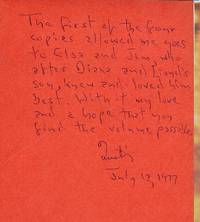 The first of the four
copies allowed me goes
to Elsa and Jim, who
after Diana and Lionel's
son, knew and loved him
best. With it my love
and a hope that you
find the volume passable
July 12, 1977